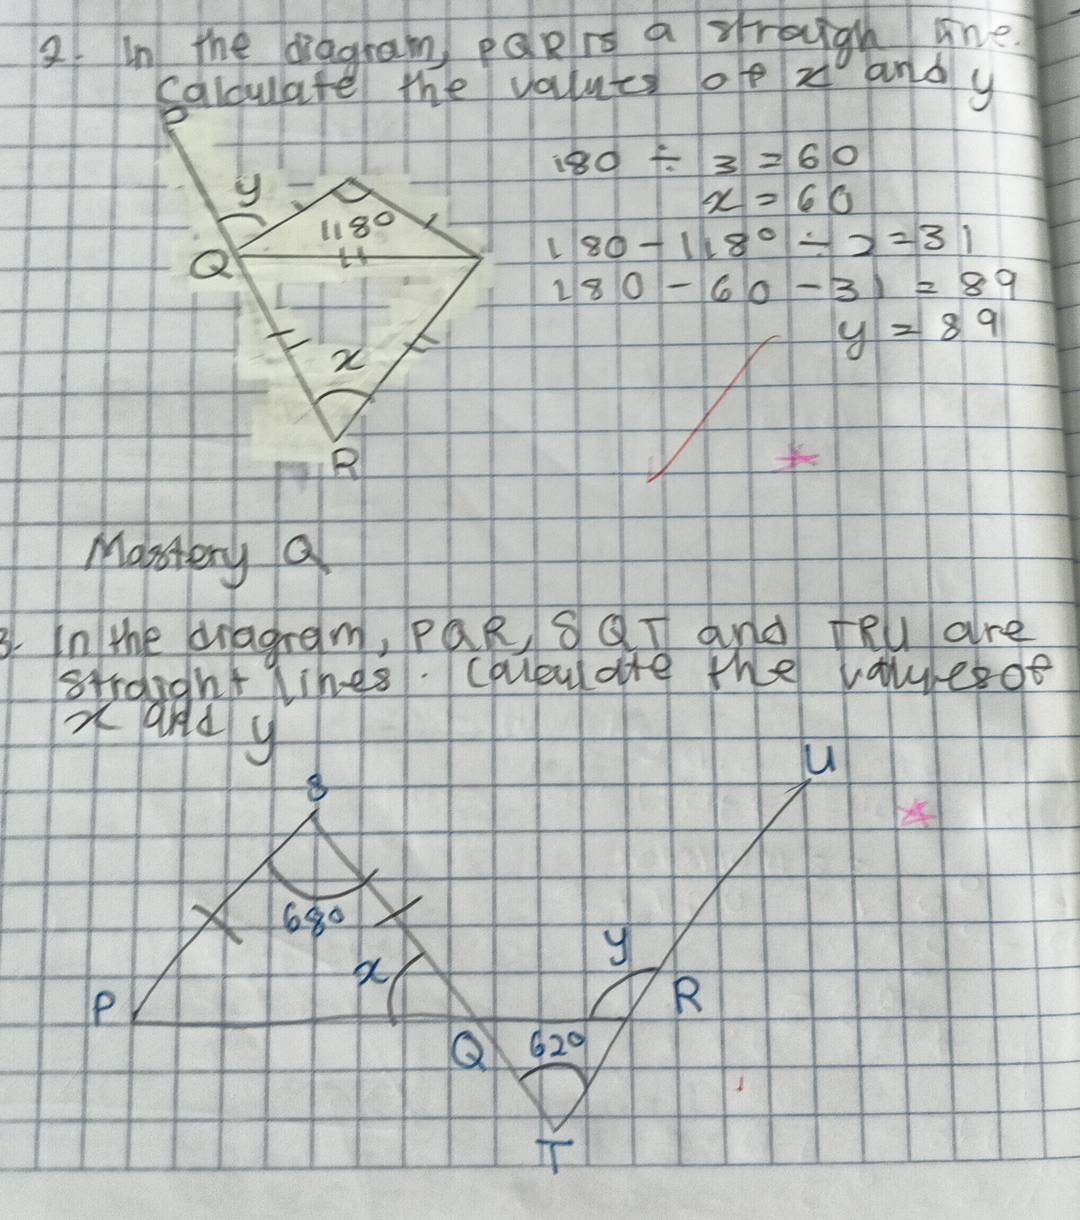 2. In the diagram, PQR is a straigh line.
Calculate the values of x and y
P
180 ÷ 3 = 60
y
x = 60
118°
180 - 118° ÷ 2 = 31
Q
180 - 60 - 31 = 89
y = 89
x
R
Mastery Q
3. In the diagram, PQR, SQT and TRU are
straight lines. Calculate the values of
x and y
U
S
68°
y
x
P
R
Q
62°
T